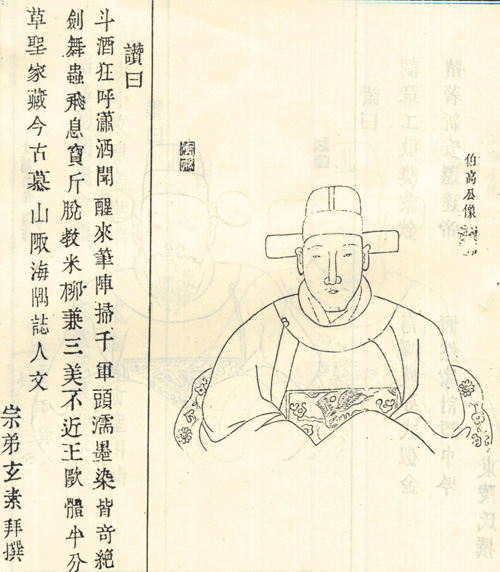 伯高公像
讚曰
斗酒狂呼瀟洒聞醒來筆陣掃千軍頭濡墨染皆竒絕
劍舞蟲飛息寶斤脫教米柳兼三美不近王歐體半分
草聖家藏今古慕山陬海隅誌人文
宗弟玄素拜撰